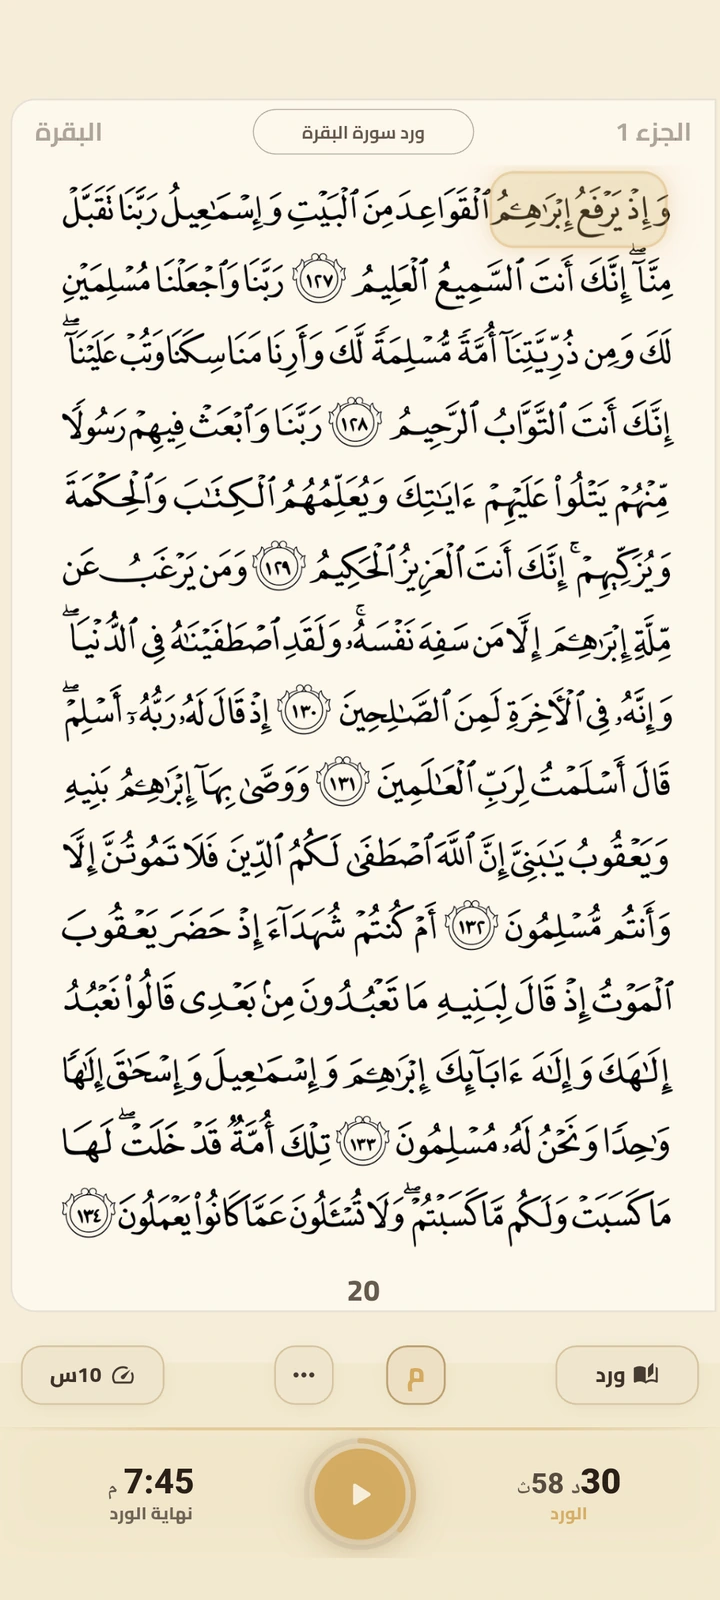 الجزء 1
ورد سورة البقرة
البقرة
وَإِذْ يَرْفَعُ إِبْرَٰهِـۧمُ ٱلْقَوَاعِدَ مِنَ ٱلْبَيْتِ وَإِسْمَٰعِيلُ رَبَّنَا تَقَبَّلْ
مِنَّآ ۖ إِنَّكَ أَنتَ ٱلسَّمِيعُ ٱلْعَلِيمُ ١٢٧ رَبَّنَا وَٱجْعَلْنَا مُسْلِمَيْنِ
لَكَ وَمِن ذُرِّيَّتِنَآ أُمَّةً مُّسْلِمَةً لَّكَ وَأَرِنَا مَنَاسِكَنَا وَتُبْ عَلَيْنَآ ۖ
إِنَّكَ أَنتَ ٱلتَّوَّابُ ٱلرَّحِيمُ ١٢٨ رَبَّنَا وَٱبْعَثْ فِيهِمْ رَسُولًا
مِّنْهُمْ يَتْلُوا۟ عَلَيْهِمْ ءَايَٰتِكَ وَيُعَلِّمُهُمُ ٱلْكِتَٰبَ وَٱلْحِكْمَةَ
وَيُزَكِّيهِمْ ۚ إِنَّكَ أَنتَ ٱلْعَزِيزُ ٱلْحَكِيمُ ١٢٩ وَمَن يَرْغَبُ عَن
مِّلَّةِ إِبْرَٰهِـۧمَ إِلَّا مَن سَفِهَ نَفْسَهُۥ ۚ وَلَقَدِ ٱصْطَفَيْنَٰهُ فِى ٱلدُّنْيَا ۖ
وَإِنَّهُۥ فِى ٱلْـَٔاخِرَةِ لَمِنَ ٱلصَّٰلِحِينَ ١٣٠ إِذْ قَالَ لَهُۥ رَبُّهُۥٓ أَسْلِمْ ۖ
قَالَ أَسْلَمْتُ لِرَبِّ ٱلْعَٰلَمِينَ ١٣١ وَوَصَّىٰ بِهَآ إِبْرَٰهِـۧمُ بَنِيهِ
وَيَعْقُوبُ يَٰبَنِىَّ إِنَّ ٱللَّهَ ٱصْطَفَىٰ لَكُمُ ٱلدِّينَ فَلَا تَمُوتُنَّ إِلَّا
وَأَنتُم مُّسْلِمُونَ ١٣٢ أَمْ كُنتُمْ شُهَدَآءَ إِذْ حَضَرَ يَعْقُوبَ
ٱلْمَوْتُ إِذْ قَالَ لِبَنِيهِ مَا تَعْبُدُونَ مِنۢ بَعْدِى قَالُوا۟ نَعْبُدُ
إِلَٰهَكَ وَإِلَٰهَ ءَابَآئِكَ إِبْرَٰهِـۧمَ وَإِسْمَٰعِيلَ وَإِسْحَٰقَ إِلَٰهًا
وَٰحِدًا وَنَحْنُ لَهُۥ مُسْلِمُونَ ١٣٣ تِلْكَ أُمَّةٌ قَدْ خَلَتْ ۖ لَهَا
مَا كَسَبَتْ وَلَكُم مَّا كَسَبْتُمْ ۖ وَلَا تُسْـَٔلُونَ عَمَّا كَانُوا۟ يَعْمَلُونَ ١٣٤
20
ورد
م
...
10س
30د 58ث
الورد
7:45 م
نهاية الورد